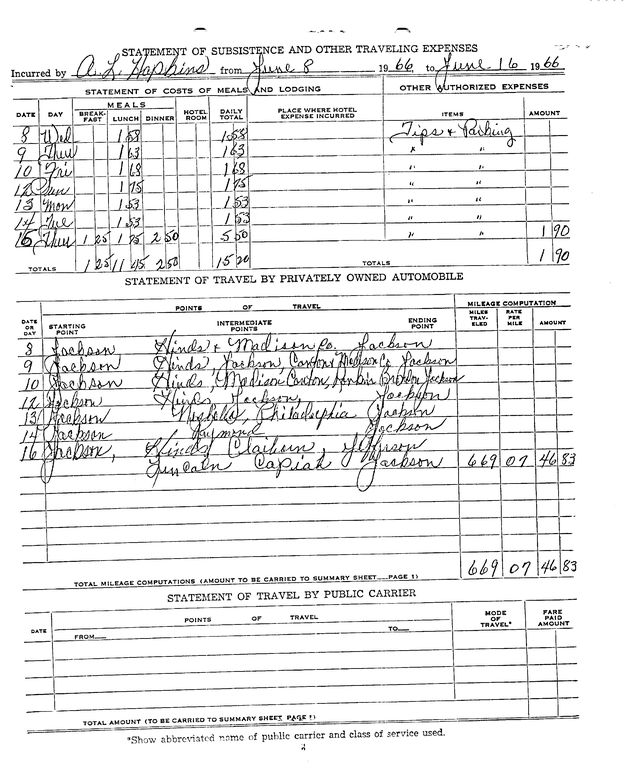 STATEMENT OF SUBSISTENCE AND OTHER TRAVELING EXPENSES
Incurred by A. L. Hopkins from June 8 1966, to June 16 1966
STATEMENT OF COSTS OF MEALS AND LODGING OTHER AUTHORIZED EXPENSES
DATE DAY MEALS BREAK-FAST LUNCH DINNER HOTEL ROOM DAILY TOTAL PLACE WHERE HOTEL EXPENSE INCURRED ITEMS AMOUNT
8 Wed 1 58 1 58 Tips & Parking
9 Thur 1 63 1 63 " "
10 Fri 1 68 1 68 " "
12 Sun 1 75 1 75 " "
13 Mon 1 53 1 53 " "
14 Tue 1 53 1 53 " "
16 Thur 1 25 1 75 2 50 5 50 " " 1 90
TOTALS 1 25 11 45 2 50 15 20 TOTALS 1 90
STATEMENT OF TRAVEL BY PRIVATELY OWNED AUTOMOBILE
POINTS OF TRAVEL MILEAGE COMPUTATION
DATE OR DAY STARTING POINT INTERMEDIATE POINTS ENDING POINT MILES TRAV-ELED RATE PER MILE AMOUNT
8 Jackson Hinds & Madison Co. Jackson
9 Jackson Hinds, Jackson, Canton, Madison Co, Jackson
10 Jackson Hinds, Madison, Canton, Brandon Jackson
12 Jackson Hinds Jackson, Jackson
13 Jackson Philadelphia Jackson
14 Jackson Raymond Jackson
16 Jackson, Hinds, Claiborn, Jefferson
Lincoln Copiah Jackson 669 07 46 83
TOTAL MILEAGE COMPUTATIONS (AMOUNT TO BE CARRIED TO SUMMARY SHEET PAGE 1) 669 07 46 83
STATEMENT OF TRAVEL BY PUBLIC CARRIER
DATE POINTS OF TRAVEL MODE OF TRAVEL* FARE PAID AMOUNT
FROM TO
TOTAL AMOUNT (TO BE CARRIED TO SUMMARY SHEET PAGE 1)
*Show abbreviated name of public carrier and class of service used.